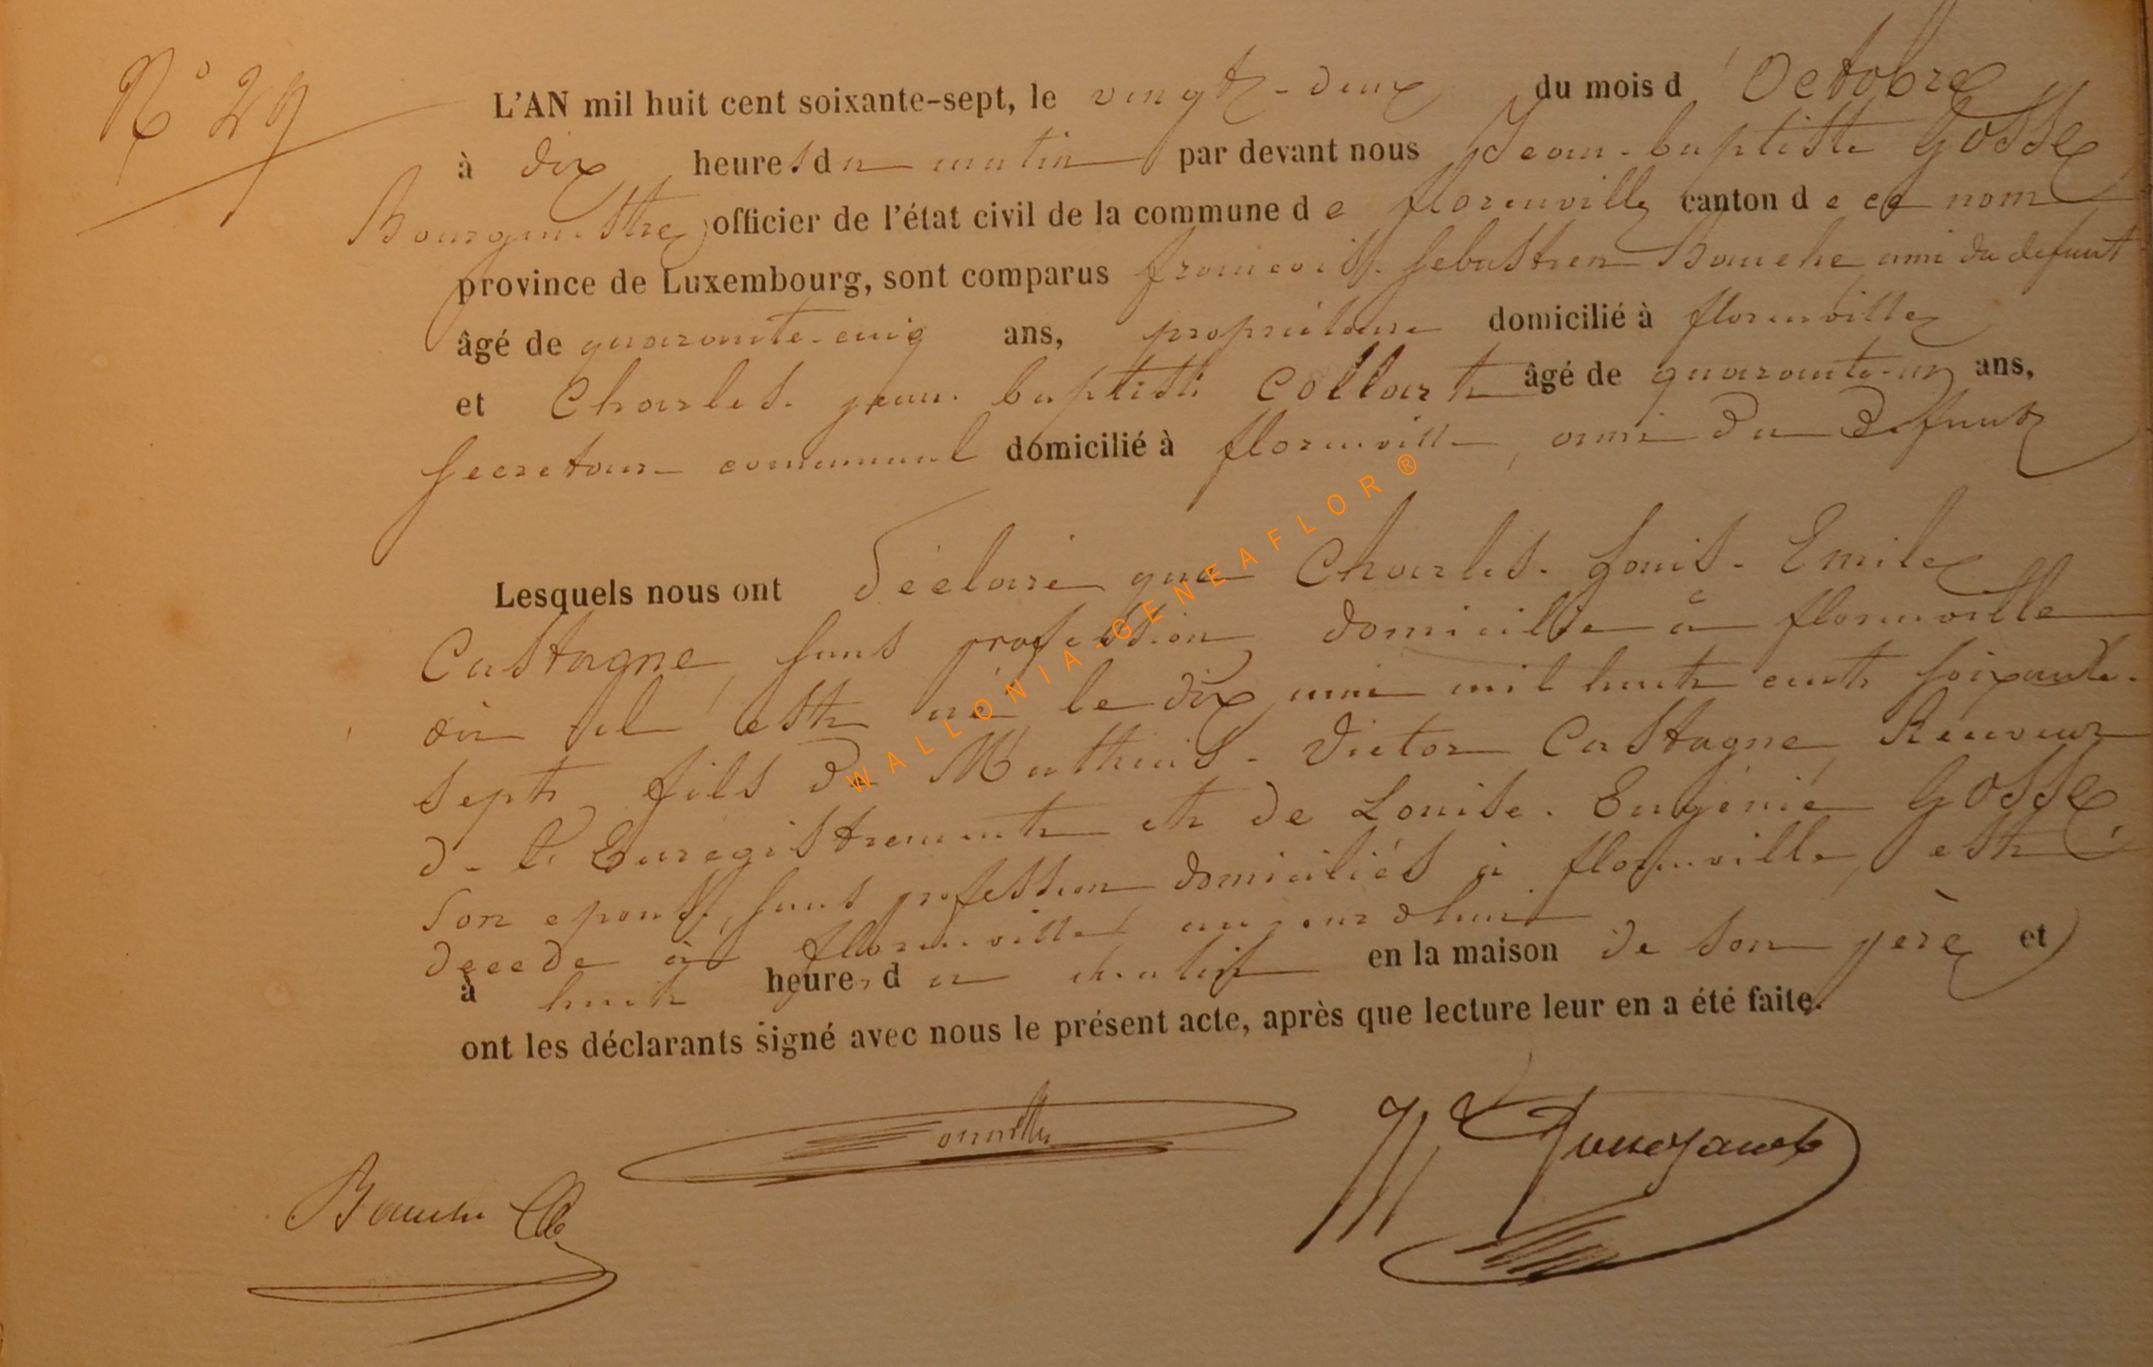 N° 29
L'AN mil huit cent soixante-sept, le vingt-deux du mois d'Octobre
à dix heures du matin par devant nous Jean-baptiste Gosse
Bourgmestre officier de l'état civil de la commune de florenville canton de ce nom
province de Luxembourg, sont comparus françois sebastien Bauche ami du defunt
âgé de quarante-cinq ans, propriétaire domicilié à florenville
et Charles-jean-baptiste Collart âgé de quarante-un ans,
secretaire communal domicilié à florenville, ami du defunt
Lesquels nous ont déclaré que Charles-Louis-Emile
Castagne, sans profession domicilié à florenville
où il est né le dix mai mil huit cent soixante-
sept fils de Mathias-Victor Castagne, Receveur
de l'Enregistrement et de Louise-Eugénie Gosse
son epouse, sans profession domiciliés à florenville, est
decede à florenville aujourdhui
à huit heures du matin en la maison de son père et
ont les déclarants signé avec nous le présent acte, après que lecture leur en a été faite.
Bauche
WALLONIA-GENEAFLOR®